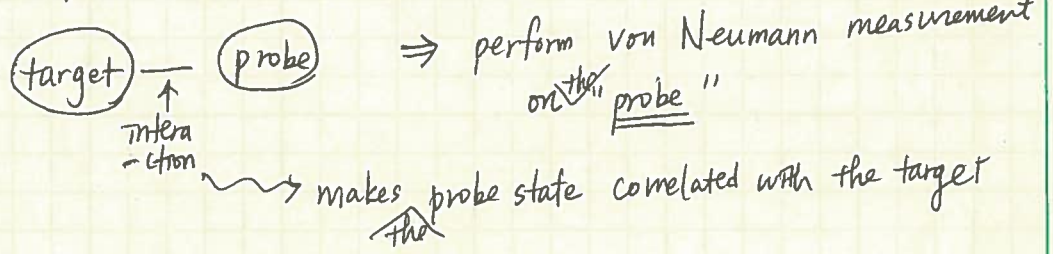 target — probe ⇒ perform von Neumann measurement
on the "probe"
intera
-ction
makes the probe state correlated with the target